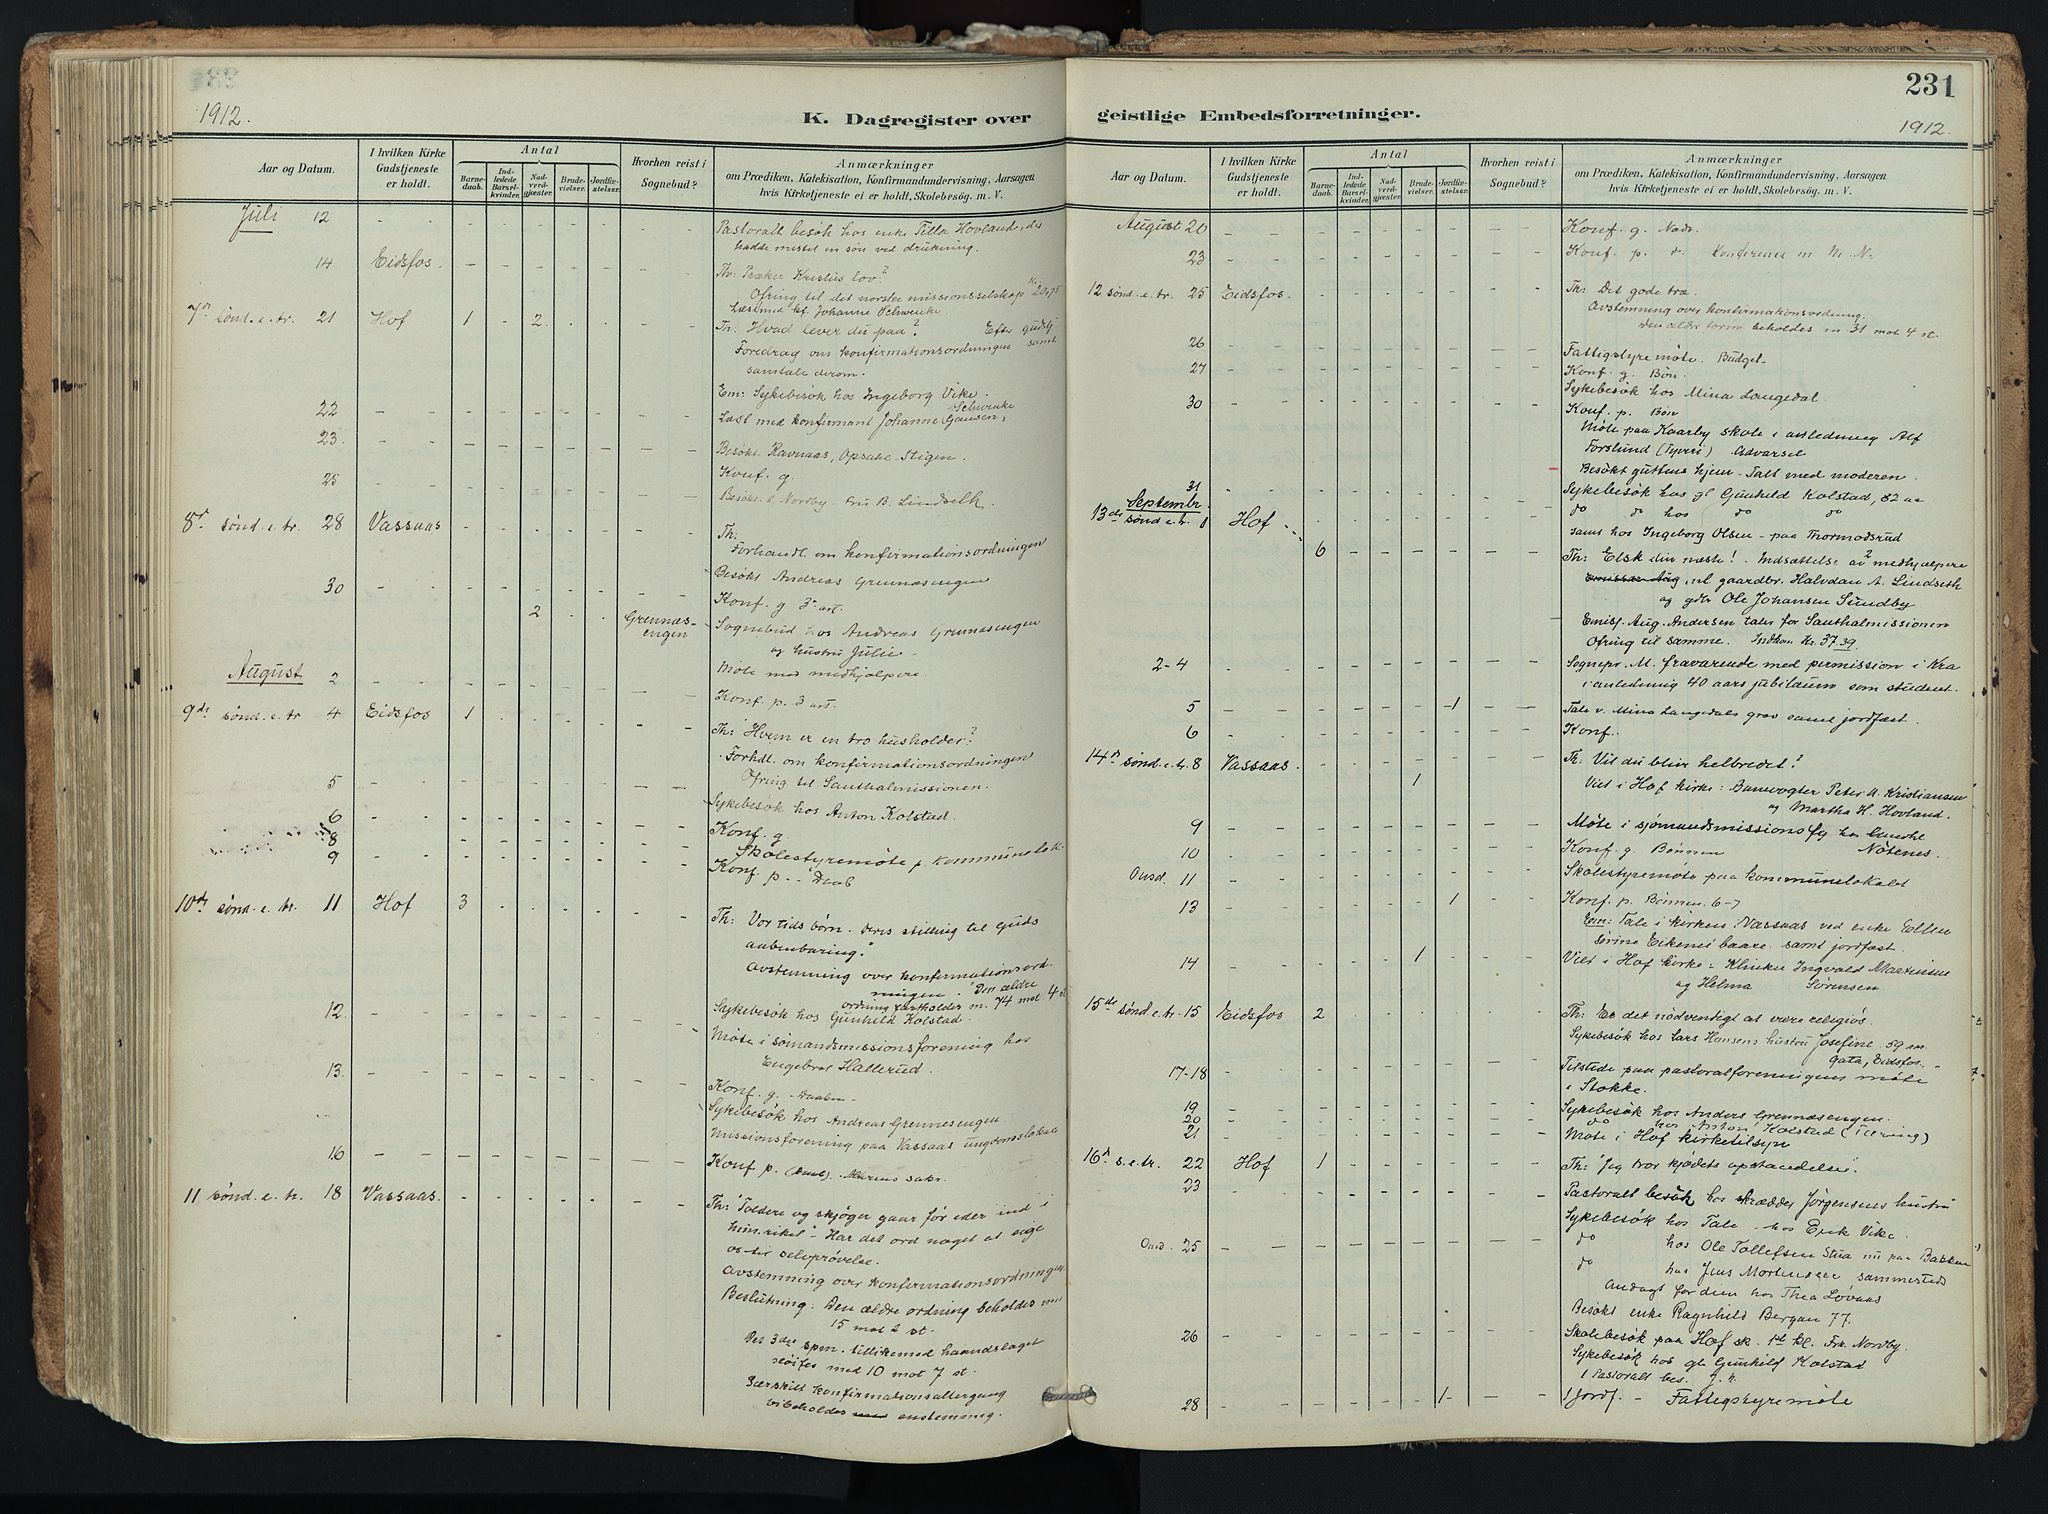 231
1912.
K. Dagregister over geistlige Embedsforretninger.
1912.
Aar og Datum.
I hvilken Kirke Gudstjeneste er holdt.
Antal
Barnedaab.
Indledede Barselkvinder.
Nadverdgjæster.
Brudevielser.
Jordfæstelser.
Hvorhen reist i Sognebud?
Anmærkninger
om Prædiken, Katekisation, Konfirmandundervisning, Aarsagen
hvis Kirketjeneste ei er holdt, Skolebesøg. m. V.
Juli 12 Pastoralt besøk hos enke Tilla Hovland, der
hadde mistet en søn ved drukning.
14 Eidsfos. Th: Præker Kristus lov?
Ofring til det norske missionsselskap Kr. 20.75
Læst med kf. Johanne Schwenke
7de sønd. e. tr. 21 Hof 1 2 Th: Hvad lever du paa? Efter gudstj
Foredrag om konfirmationsordningen samt
samtale derom.
Em: Sykebesøk hos Ingeborg Vike.
22 Læst med konfirmant Johanne Schwenke
23. Besøkt Ravnaas, Opsahl, Stigen.
25 Konf. g.
Besøkt Nordby - Gru B. Lindseth.
8de sønd. e. tr. 28 Vassaas Th:
Forhandl. om konfirmationsordningen
Besøkt Andreas Grennæsengen
30 Konf. g 3 art.
2 Grennæsengen Sognebud hos Andreas Grennæsengen
og hustru Julie -
August 2 Møte med medhjælpere.
Konf. p. 3 art.
9de sønd. e. tr 4 Eidsfos 1 Th: Hvem er en tro husholder?
Forhdl. om konfirmationsordningen
Ofring til Santhalmissionen.
5 Sykebesøk hos Anton Kolstad.
6 Konf. g.
8 Skolestyremøte p. kommunelok.
9 Konf. p. - Daab
10de sønd. e. tr. 11 Hof 3 Th: Vor tids børn. Deres stilling til Guds
aabenbaring.
Avstemning over konfirmationsordningen. Den ældre
ordning fastholdes m. 74 mot 4 st
12. Sykebesøk hos Gunhild Kolstad.
Møte i sømandsmissionsforening hos
Engebret Hallerud.
13. Konf. g. - Daaben -
Sykebesøk hos Andreas Grennesengen
Missionsforening paa Vassaas ungdomslokale
16 Konf p. (Daab).
11 sønd. e. tr. 18 Vassaas. Th: "Toldere og skjøger gaar før eder ind i
himmriket" - Har det ord noget at sige
os til selvprøvelse.
Avstemning over konfirmationsordningen
Beslutning: Den ældre ordning beholdes med
15 mot 2 st.
Det 3die spm. tillikemed haandslaget
sløifes med 10 mot 7 st.
Særskilt konfirmationsaltergang
bibeholdes enstemmig.
Aar og Datum.
I hvilken Kirke Gudstjeneste er holdt.
Antal
Barnedaab.
Indledede Barselkvinder.
Nadverdgjæster.
Brudevielser.
Jordfæstelser.
Hvorhen reist i Sognebud?
Anmærkninger
om Prædiken, Katekisation, Konfirmandundervisning, Aarsagen
hvis Kirketjeneste ei er holdt, Skolebesøg. m. V.
August 20 Konf. g. Nadv.
23 Konf. p. do Konferance m M. N.
12 sønd. e. tr. 25 Eidsfos. Th: Det gode træ.
Avstemning over konfirmationsordning.
Den ældre form beholdes m 31 mot 4 st.
26 Fattigstyremøte. Budget
27 Konf. g. Bøn.
Sykebesøk hos Mina Langedal.
30 Konf. p. Bøn
Møte paa Kaarby skole i anledning Alf
Forslund (Tyveri) Advarsel
Besøkt guttens hjem - Talt med moderen.
31 Sykebesøk hos gl Gunhild Kolstad, 82 aa
do do hos do do
Septembr.
13de sønd e. tr. 1 Hof Samt hos Ingeborg Olsen - paa Thormodsrud
6 Th: Elsk din næste! Indsættelse av 2 medhjælpere
nl. gaardbr. Halvdan A. Lindseth
og gdbr Ole Johansen Sundby
Emisf. Aug. Andersen taler for Santhalmissionen
Ofring til samme. Indkom Kr. 37.39.
2-4 Sognepr. M. fraværende med permission i Kra
i anledning 40 aars jubilæum som student.
5 1 Tale v. Mina Langedals grav samt jordfæst.
6 Konf.
14de sønd. e. tr. 8 Vassaas. Th: Vil du bliver helbredet?
1 Viet i Hof kirke: Banevogter Peter A. Kristiansen
og Martha H. Hovland.
9 Møte i sjømandsmissions fg hos
10 Konf. g. Bønnen Nøtenes.
Onsd. 11 Skolestyremøte paa kommunelokalet
13 1 Konf. p. Bønnen. 6-7
Em: Tale i kirken Vassaas ved enke Ellen
Sørine Eikenes baare samt jordfæst.
14 1 Viet i Hof kirke: Ingvald Martinsen
og Helma Sørensen
15de sønd. e. tr. 15 Eidsfos 2 Th: Er det nødvendigt at være religiøs
Sykebesøk hos Lars Hansens hustru Josefine. 59
Gata, Eidsfos.
17-18 Tilstede paa pastoralforeningens møte
i Stokke.
19 Sykebesøk hos Anders Grennæsengen.
20 do hos Anton Kolstad (Tæring)
21 Møte i Hof kirketilsyn
16de s. e. tr. 22 Hof 1 Th: "Jeg tror kjødets opstandelse".
23 Pastoralt besøk hos skrædder Jørgensens hustru
Sykebesøk hos Tale - hos Erik Vike.
Onsd. 25 do hos Ole Tollefsen Stua nu paa Bakken
do hos Jens Mortensen sammesteds
Andagt for dem hos Thea Løvaas
Besøkt enke Ragnhild Bergan 77.
26 Skolebesøk paa Hof sk. 1st kl. Frk. Nordby.
Sykebesøk hos gl. Gunhild Kolstad
1 Pastoralt bes.
28 1 1 Jordf. - Fattigstyremøte